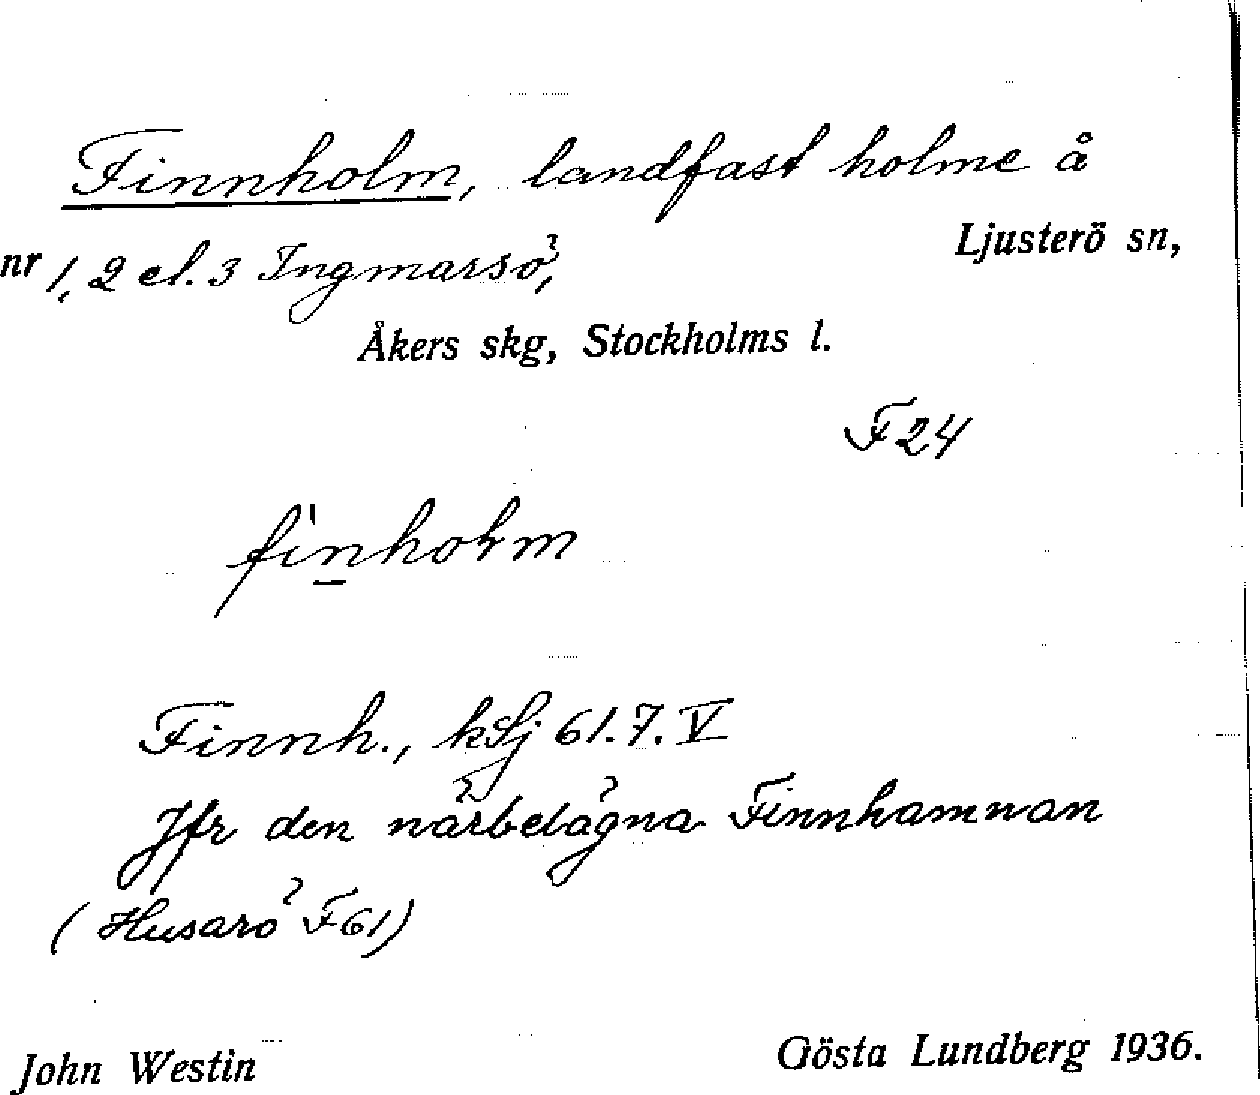 Finnholm, landfast holme å
nr 1, 2 el. 3 Ingmarsö, Ljusterö sn,
Åkers skg, Stockholms l.
F 24
Finnh., kSj 61.7.V
Jfr den närbelägna Finnhamnan
(Husarö F61)
John Westin Gösta Lundberg 1936.